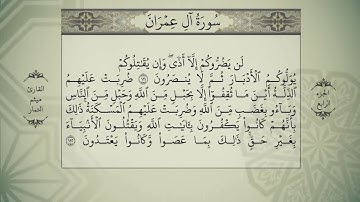 سُورَةُ آلِ عِمْرَانَ
الجزء
الرابع
لَن يَضُرُّوكُمْ إِلَّآ أَذًى ۖ وَإِن يُقَـٰتِلُوكُمْ
يُوَلُّوكُمُ ٱلْأَدْبَارَ ثُمَّ لَا يُنصَرُونَ ١١١ ضُرِبَتْ عَلَيْهِمُ
ٱلذِّلَّةُ أَيْنَ مَا ثُقِفُوٓا۟ إِلَّا بِحَبْلٍ مِّنَ ٱللَّهِ وَحَبْلٍ مِّنَ ٱلنَّاسِ
وَبَآءُو بِغَضَبٍ مِّنَ ٱللَّهِ وَضُرِبَتْ عَلَيْهِمُ ٱلْمَسْكَنَةُ ۚ ذَٰلِكَ
بِأَنَّهُمْ كَانُوا۟ يَكْفُرُونَ بِـَٔايَـٰتِ ٱللَّهِ وَيَقْتُلُونَ ٱلْأَنۢبِيَآءَ
بِغَيْرِ حَقٍّ ۚ ذَٰلِكَ بِمَا عَصَوا۟ وَّكَانُوا۟ يَعْتَدُونَ ١١٢
القارئ
ميثم
التمار